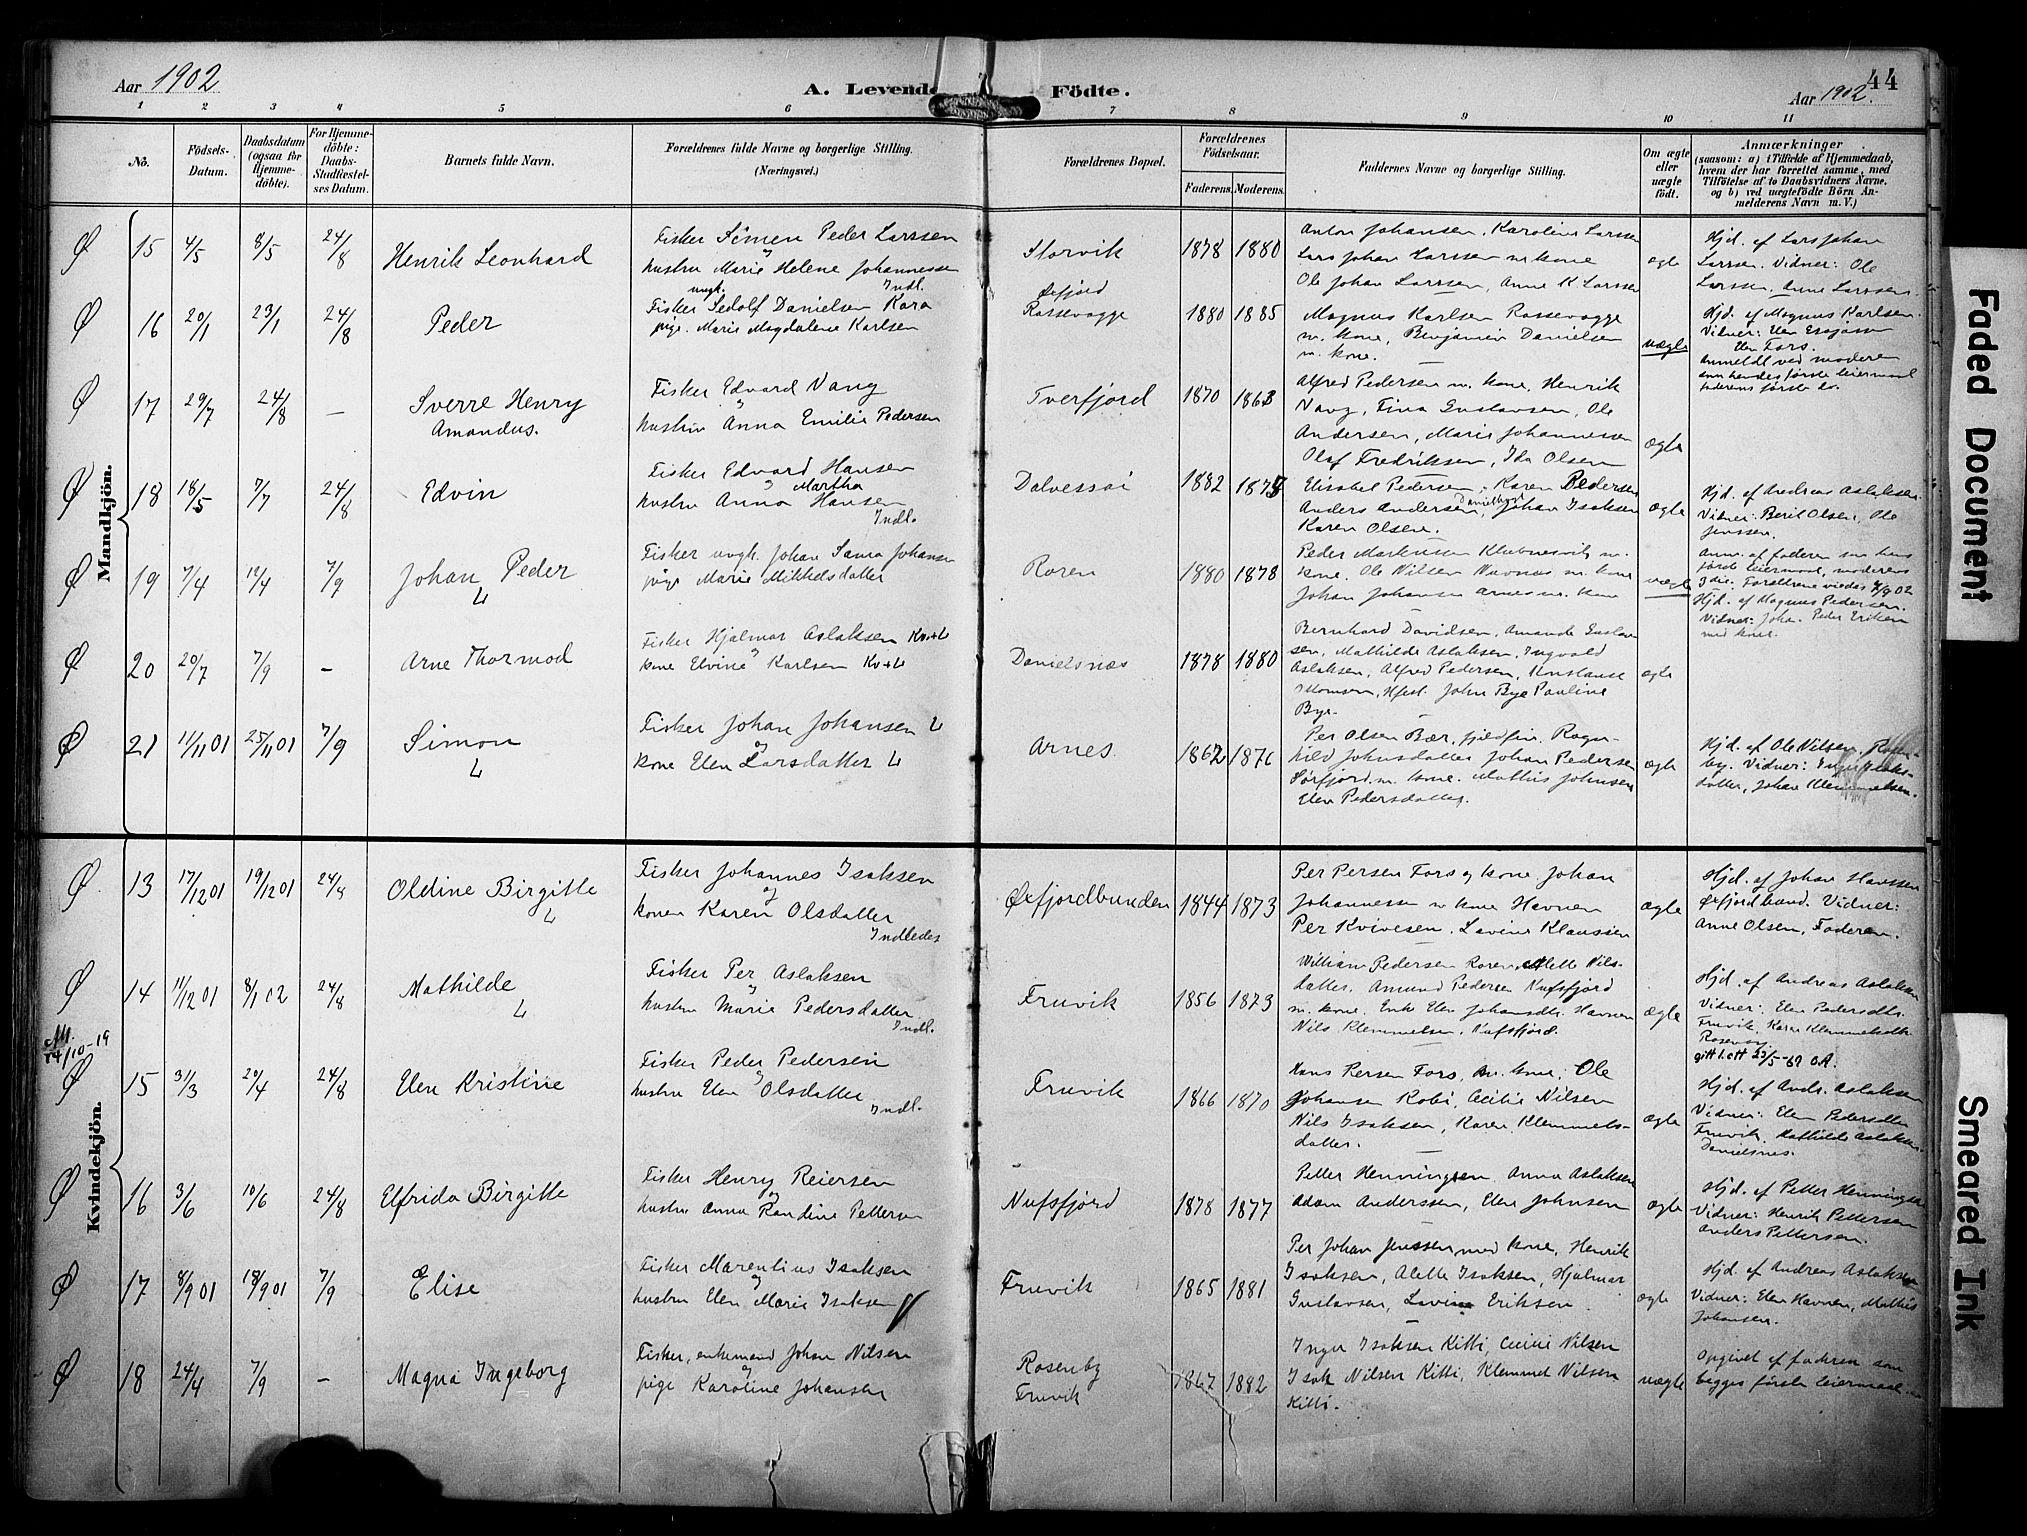 Aar 1902
A. Levende Födte.
44
Aar 1902.
1 2 3 4 5 6 7 8 9 10 11
Nò.
Födsels-
Datum.
Daabsdatum
(ogsaa for
Hjemme-
döbte).
For Hjemme-
döbte:
Daabs-
Stadfæstel-
ses Datum.
Barnets fulde Navn.
Forældrenes fulde Navne og borgerlige Stilling.
(Næringsvei.)
Forældrenes Bopæl.
Forældrenes
Födselsaar.
Faderens. Moderens.
Faddernes Navne og borgerlige Stilling.
Om ægte
eller
uægte
födt.
Anmærkninger
(saasom: a) i Tilfælde af Hjemmedaab,
hvem der har forrettet samme, med
Tilföielse af to Daabsvidners Navne,
og b) ved uægtefödte Börn An-
melderens Navn m. V.)
Mandkjön.
Ø 15 4/5 8/5 24/8 Henrik Leonhard
Fisker Simen Peder Larssen
og
hustru Marie Helene Johannessen
Indl.
Storvik 1878 1880
Anton Johansen, Karoline Larssen
Lars Johan Larssen m kone
Ole Johan Larssen, Anne K Larssen
ægte
Hjd. af Lars Johan
Larssen. Vidner: Ole
Larssen, Anne Larssen.
Ø 16 20/1 23/1 24/8 Peder
ungk.
Fisker Sedolf Danielsen Kara
pige. Marie Magdalene Karlsen
Øxfjord
Rassevagge 1880 1885
Magnus Karlsen Rassevagge
m. kone, Benjamin Danielsen
m. kone.
uægte
Hjd. af Magnus Karlsen.
Vidner: Elen
Elen Fors.
Anmeldt ved moderen
som hendes første leiermaal
faderens første do.
Ø 17 29/7 24/8 — Sverre Henry
Amandus.
Fisker Edvard Vang
og
hustru Anna Emilie Pedersen
Tverfjord 1870 1863
Alfred Pedersen m. kone, Henrik
Vang, Fina Gustavsen, Ole
Andersen, Marie Johannessen
Olaf Fredriksen, Ida Olsen
ægte
Ø 18 18/5 7/7 24/8 Edvin
Fisker Edvard Hansen
og Martha
hustru Anna Hansen
Indl.
Dalvessoi 1882 1875
Elisabet Pedersen, Karen Pedersen
Anders Andersen, Johan Isaksen
Karen Olsen.
ægte
Hjd. af Andreas Aslaksen.
Vidner: Berit Olsen, Ole
Jenssen.
Ø 19 7/4 12/4 7/9 Johan Peder
L
Fisker ungk. Johan Samo Johansen
pige Marie Mikkelsdatter
Raren 1880 1878
Peder Markussen m.
kone. Ole Nilsen m. kone
Johan Johansen Arnes m. kone
uægte
Anm. af faderen som hans
første leiermaal, moderens
3die. Forældrene viedes 7/9 02
Hjd. af Magnus Pedersen.
Vidner: Johan Peder Eriksen
med kone.
Ø 20 20/7 7/9 — Arne Thormod
Fisker Hjalmar Aslaksen Kv+L
og
kone Elvine Karlsen Kv+L
Danielsnæs 1878 1880
Bernhard Davidsen, Amanda Gustav
sen, Mathilde Aslaksen, Ingvald
Aslaksen, Alfred Pedersen, Konstanse
Thomsen, Hfisk. John Bye Pauline
Bye.
ægte
Ø 21 11/11 01 25/11 01 7/9 Simon
L
Fisker Johan Johansen L
og
kone Elen Larsdatter L
Arnes. 1862 1876
Per Olsen Bær, fjeldfin. Ragn-
hild Johnsdatter Johan Pedersen
Sørfjord m. kone. Mathis Johnsen
Elen Pedersdatter.
ægte
Hjd. af Ole Nilsen, Rosen-
by. Vidner: Inger Isaks-
datter, Johan Klemmetsen.
Kvindekjön.
Ø 13 17/12 01 19/12 01 24/8 Oldine Birgitte
L
Fisker Johannes Isaksen
og
konen Karen Olsdatter
Indledes
Øxfjordbunden 1844 1873
Per Persen Fors og kone, Johan
Johannessen m kone Havnen
Per Kvivesen, Lavine Klaussen
ægte
Hjd. af Johan Hanssen
Øxfjordbund. Vidner:
Anne Olsen, Faderen.
Ø 14 11/12 01 8/1 02 24/8 Mathilde
L
Fisker Per Aslaksen
og
hustru Marie Pedersdatter.
Indl.
Fruvik 1856 1873
William Pedersen Raren, Alette Nils-
datter. Amund Pedersen Nufsfjord
m. kone. Enke Elen Johansdtr. Havnen
Nils Klemmetsen, Nufsfjord.
ægte
Hjd. af Andreas Aslaksen
Vidner: Elen Pedersdtr.
Fruvik, Karen Klemmetsdtr.
Rosevag.
Att.
14/10-19
Ø 15 31/3 20/4 24/8 Elen Kristine
Fisker Peder Pedersen
og
hustru Elen Olsdatter
Indl.
Fruvik 1866 1870
Hans Persen Fors, m. kone; Ole
Johansen Kobi, Cecilie Nilsen
Nils Isaksen, Karen Klemmets-
datter.
ægte
gitt att 23/5-69 OA.
Hjd. af Ands. Aslaksen
Vidner: Elen Pedersdtr
Fruvik, Mathilde Aslaksen
Danielsnes.
Ø 16 3/6 10/6 24/8 Elfrida Birgitte
Fisker Henry Reiersen
hustru Anna Randine Pettersen
Nufsfjord 1878 1877
Petter Henningsen, Anna Aslaksen
Adam Anderssen, Elen Johnsen
ægte
Hjd. af Petter Henningsen
Vidner: Henrik Pettersen
Anders Pettersen.
Ø 17 8/9 01 18/9 01 7/9 Elise
Fisker Marentius Isaksen
og
hustru Elen Marie Isaksen
Fruvik 1865 1881
Per Johan Jenssen med kone, Henrik
Isaksen, Alette Isaksen, Hjalmar
Gustavsen, Lavine Eriksen.
ægte
Hjd. af Andreas Aslaksen
Vidner: Elen Havnen, Mathis
Johansen.
Ø 18 24/4 7/9 — Magna Ingeborg
Fisker, enkemand Johan Nilsen
og
pige Karoline Johansen
Rosenby
Fruvik 1867 1882
Inger Isaksen Kitti, Cecilie Nilsen
Isak Nilsen Kitti, Klemmet Nilsen
Kitti.
uægte
Opgivet af faderen som
begges første leiermaal.
Faded Document
Smeared Ink